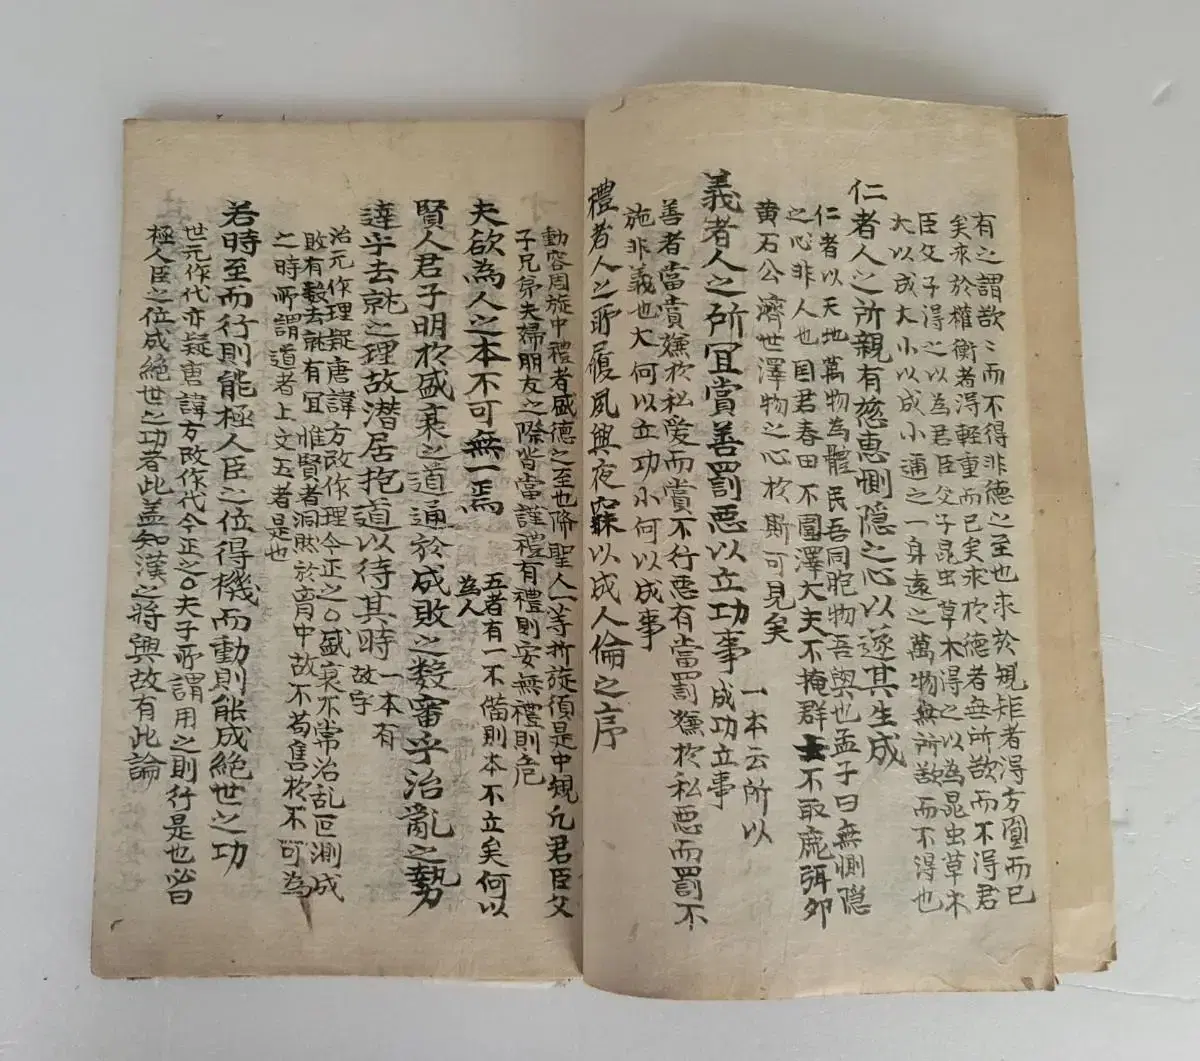 有之謂欲〻而不得非德之至也求於規矩者得方圓而已
矣求於權衡者得輕重而已矣求於德者無所欲而不得君
臣父子得之以為君臣父子昆虫草木得之以為昆虫草木
大以成大小以成小邇之一身遠之萬物無所欲而不得也
仁者人之所親有慈惠惻隐之心以遂其生成
仁者以天地萬物為體民吾同胞物吾與也孟子曰無惻隐
之心非人也国君春田不圍澤大夫不掩群士不取麑弭卵
黄石公濟世澤物之心於斯可見矣
義者人之所宜賞善罰悪以立功事
一本云所以
成功立事
善者當賞嫌於私爱而賞不行悪有當罰嫌於私悪而罰不
施非義也大何以立功小何以成事
禮者人之所履夙興夜寐以成人倫之序
動容周旋中禮者盛德之至也降聖人一等折旋須是中規凡君臣父
子兄弟夫婦朋友之際皆當謹禮有禮則安無禮則危
夫欲為人之本不可無一焉
五者有一不備則本不立矣何以
為人
賢人君子明於盛衰之道通於成敗之數審乎治亂之勢
達乎去就之理故潜居抱道以待其時
一本有
故字
治元作理疑唐諱方改作理今正之○盛衰不常治乱叵測成
敗有數去就有宜惟賢者洞然於育中故不苟售於不可為
之時所謂道者上文五者是也
若時至而行則能極人臣之位得機而動則能成絕世之功
世元作代亦疑唐諱方改作代今正之○夫子所謂用之則行是也必曰
極人臣之位成絕世之功者此盖知漢之將興故有此論